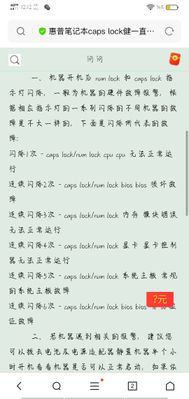 12:12
惠普笔记本caps lock键一直…
问问
一、机器开机后 num lock 和 caps lock 指
示灯闪烁，一般为机器的硬件故障报警，根
据相应指示灯的一系列闪烁的不同机器的故
障是不太一样的，下面是闪烁所代表的故
障：
闪烁1次 - caps lock/num lock cpu cpu 无法正常运
行
连续闪烁2次 - caps lock/num lock bios bios 损坏故
障
连续闪烁3次 - caps lock/num lock 内存 模块错误
无法正常运行
连续闪烁4次 - caps lock/num lock 显卡 显卡控制
器无法正常运行
连续闪烁5次 - caps lock/num lock 系统主板 常规
的系统主板故障
连续闪烁6次 - caps lock/num lock bios bios
证故障
?元
二、若机器遇到相关的报警，建议您
可以拔去电池及电源适配器静置机器半个小
时开机看看机器是否可以正常启动，如果依
2